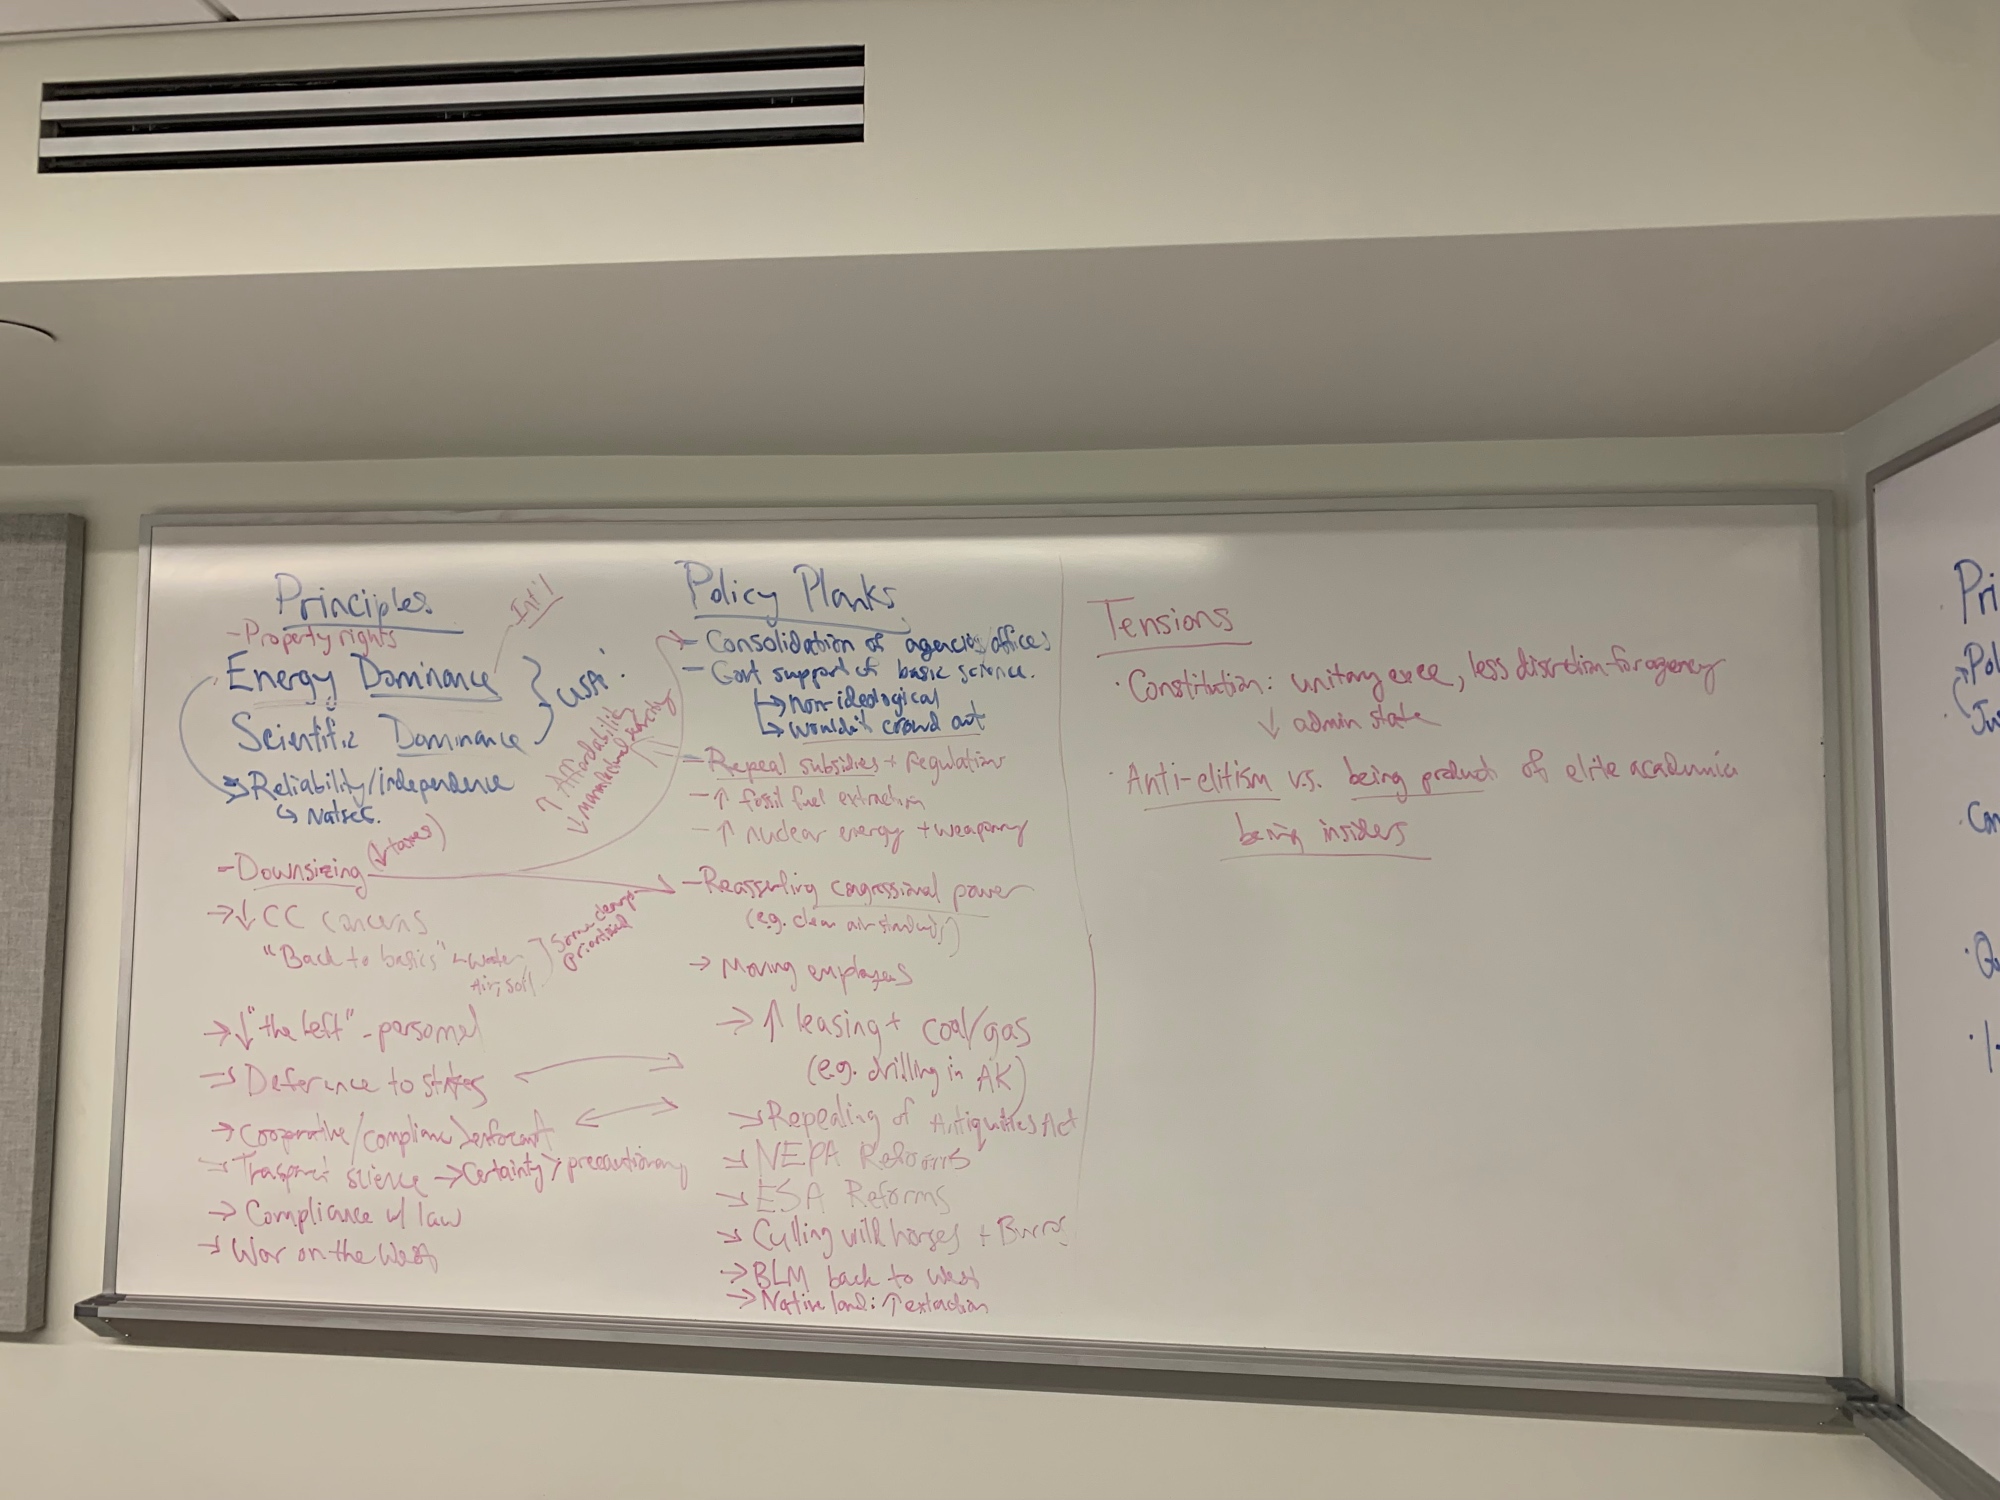 Principles
- Property rights
Int'l
Energy Dominance
Scientific Dominance
} USA!
Reliability/independence
↳ Natsec.
↑ Affordability
↓ manufactured scarcity
- Downsizing (↓ taxes)
→ ↓ CC concerns
"Back to basics" - water,
Air, soil
} Some cleanup prioritized
→ ↓ "the Left" - personnel
→ Deference to states
→ Cooperative/compliance > enforcemt
→ Trasparct science → Certainty > precautionary
→ Compliance w/ law
→ War on the West
Policy Planks
- Consolidation of agencies/offices
- Govt support of basic science.
↳ non-ideological
↳ wouldn't crowd out
- Repeal subsidies + regulations
- ↑ fossil fuel extraction
- ↑ nuclear energy + weaponry
- Reasserting congressional power
(e.g. clean air standards)
→ Moving employees
→ ↑ leasing + coal/gas
(e.g. drilling in AK)
→ Repealing of Antiquities Act
→ NEPA Reforms
→ ESA Reforms
→ Culling wild horses + Burros
→ BLM back to West
→ Native land: ↑ extraction
Tensions
· Constitution: unitary exec, less discretion for agency
↓ admin state
· Anti-elitism v.s. being product of elite academia
being insiders
Pri
Pol
Ju